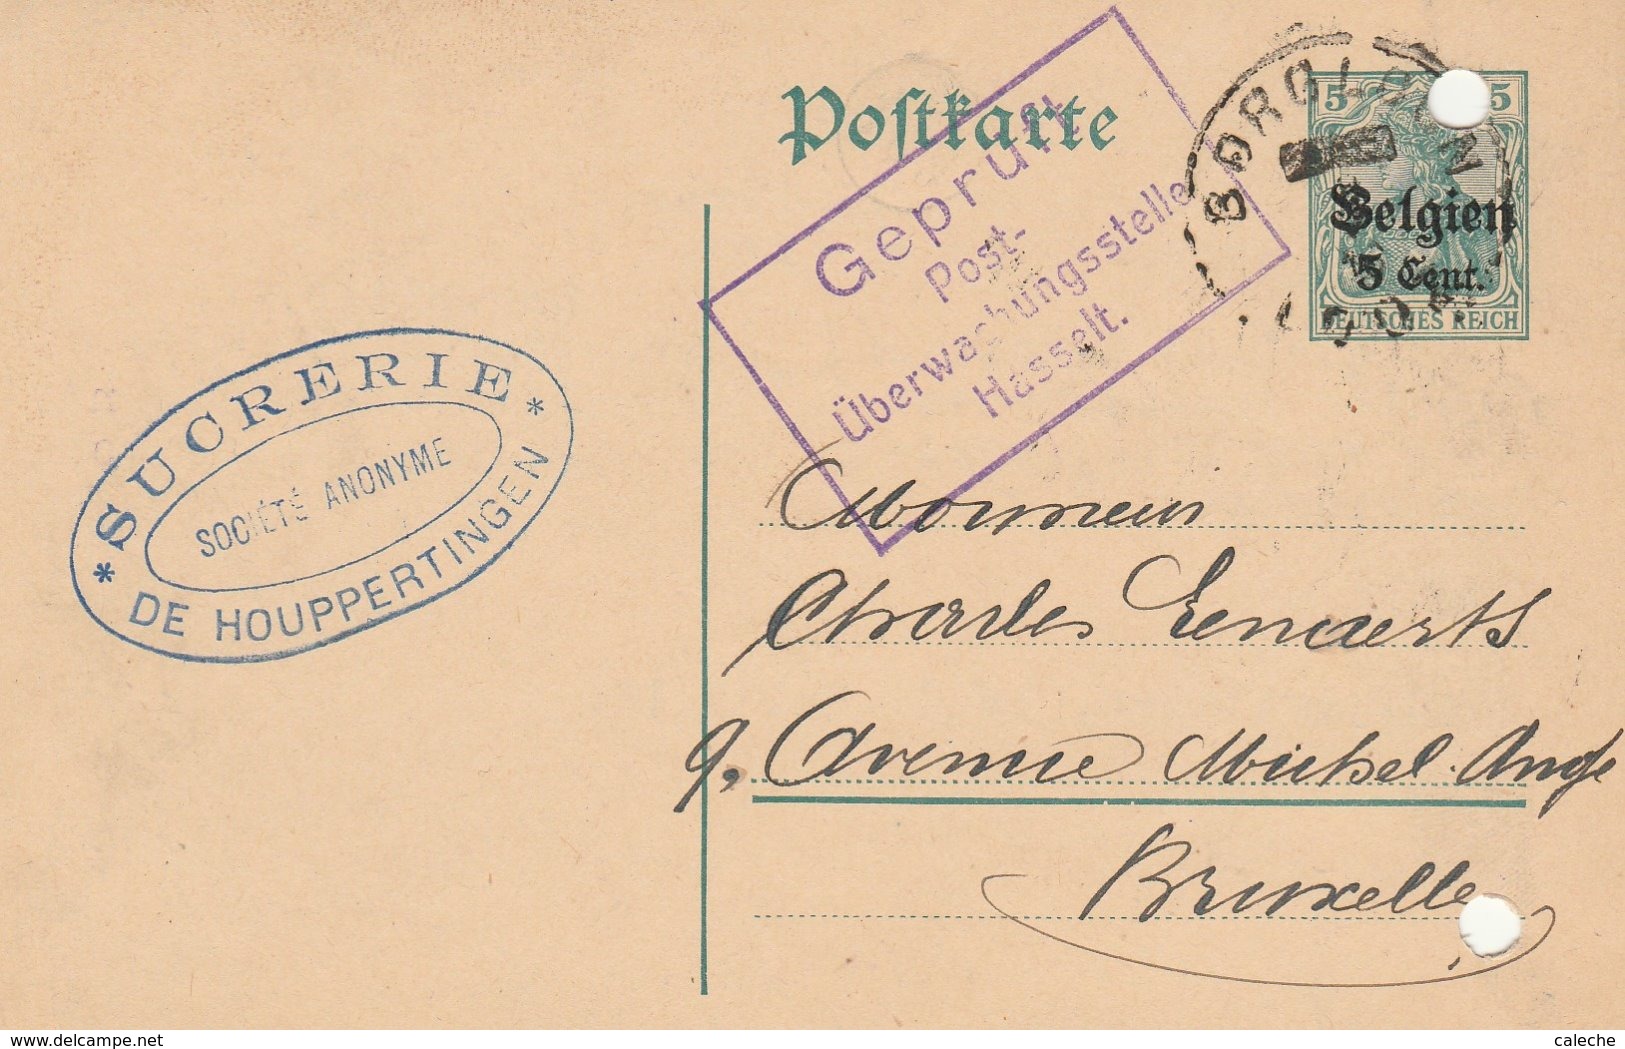 Postkarte
Geprüft
Post-
Überwachungsstelle
Hasselt.
BORGLOON
5 5
Belgien
5 Cent.
DEUTSCHES REICH
* SUCRERIE *
SOCIÉTÉ ANONYME
DE HOUPPERTINGEN
Monsieur
Charles Lenaerts
9, Avenue Michel-Ange
Bruxelles
delcampe.net
caleche